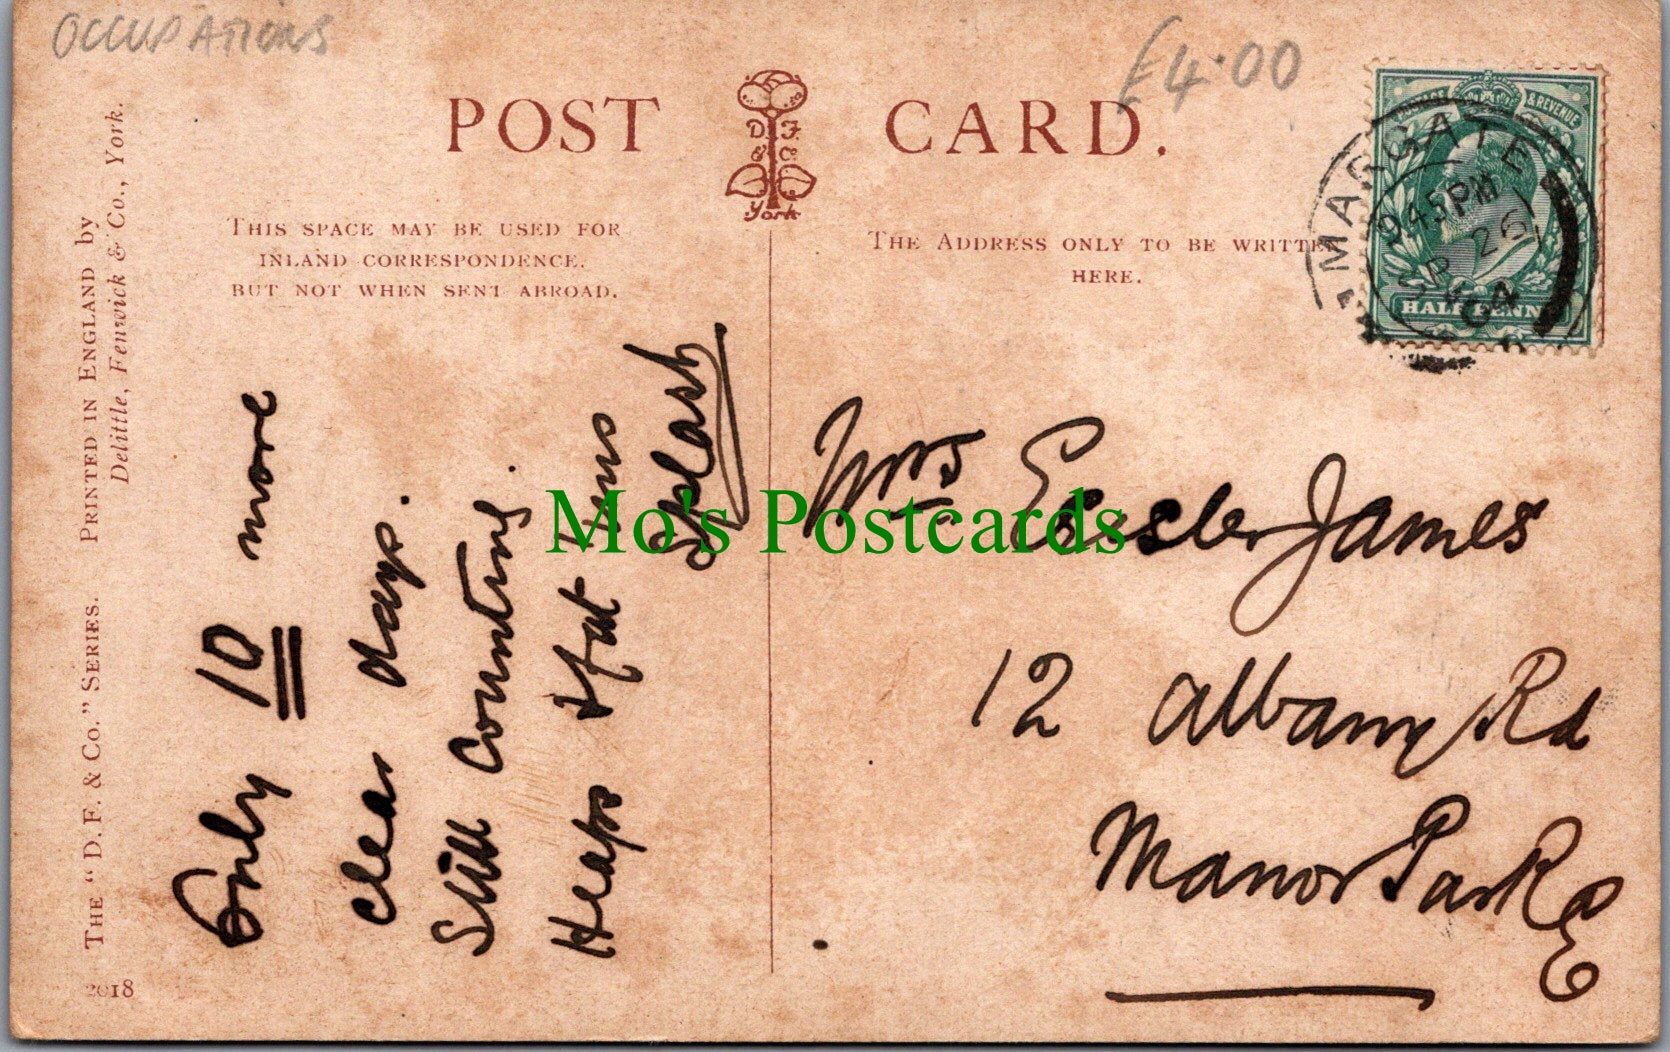 OCCUPATIONS
£4.00
POST CARD.
D. F. & Co.
York
THIS SPACE MAY BE USED FOR
INLAND CORRESPONDENCE.
BUT NOT WHEN SENT ABROAD.
THE ADDRESS ONLY TO BE WRITTEN
HERE.
POSTAGE & REVENUE
HALFPENNY
MARGATE
45PM
SP 26
04
THE "D. F. & Co." SERIES. PRINTED IN ENGLAND by
Delittle, Fenwick & Co., York.
2018
Only 10 more
clear days.
Still counting.
Heaps of fat
Splash
Mrs James
12 Albany Rd
Manor Park
E
Mo's Postcards